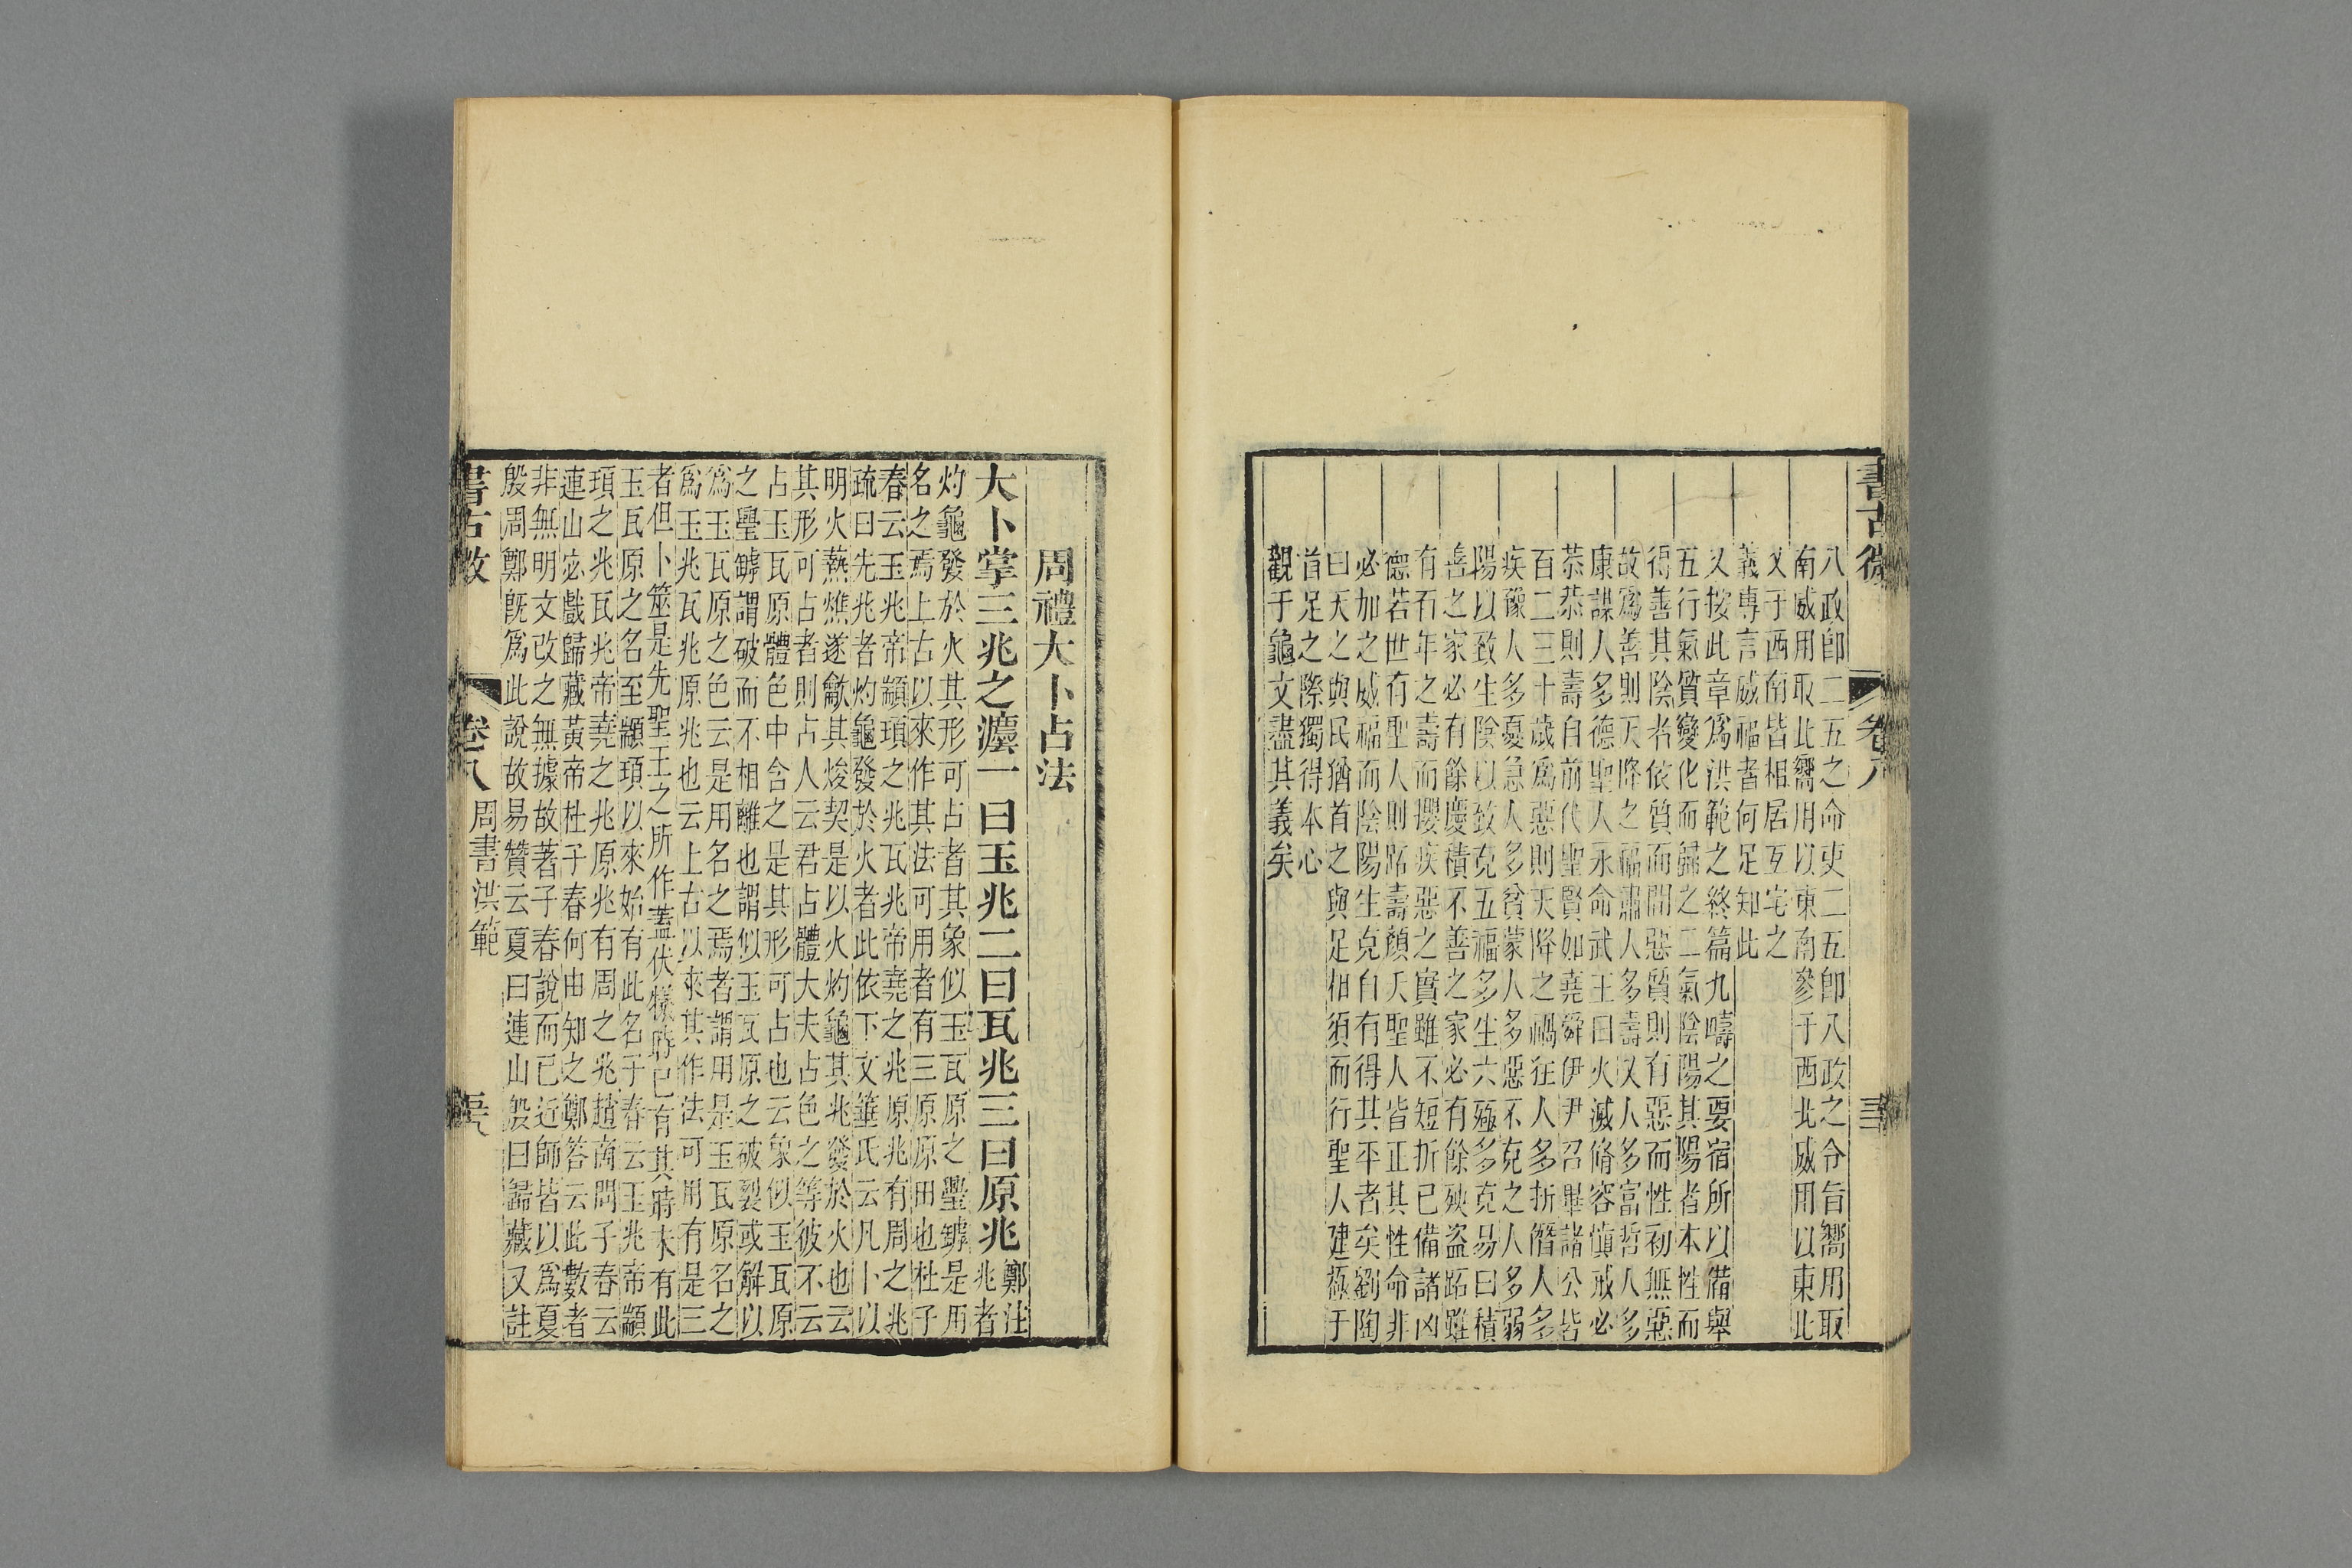 書古微 卷八
八政卽二五之命吏二五卽八政之令旨嚮用取
南威用取此嚮用以東南參于西北威用以東北
又于西南皆相居互宅之
義專言威福者何足知此
又按此章爲洪範之終篇九疇之要宿所以備舉
五行氣質變化而歸之二氣陰陽其陽者本性而
得善其陰者依質而閒惡質則有惡而性初無惡
故爲善則天降之福肅人多壽又人多富哲人多
康謀人多德聖人永命武王曰火滅脩容愼戒必
恭恭則壽自前代聖賢如堯舜伊尹召畢諸公皆
百二三十歲爲惡則天降之禍狂人多折僭人多
疾豫人多憂急人多貧蒙人多惡不克之人多弱
陽以致生陰以致克五福多生六殛多克易曰積
善之家必有餘慶積不善之家必有餘殃盜跖雖
有百年之壽而攖疾惡之實雖不短折已備諸凶
德若世有聖人則跖壽顏夭聖人皆正其性命非
必加之威福而陰陽生克自有得其平者矣劉陶
曰天之與民猶首之與足相須而行聖人建極于
首足之際獨得本心
觀于龜文盡其義矣
周禮大卜占法
大卜掌三兆之灋一曰玉兆二曰瓦兆三曰原兆鄭注
兆者
灼龜發於火其形可占者其象似玉瓦原之璺罅是用
名之焉上古以來作其法可用者有三原原田也杜子
春云玉兆帝顓頊之兆瓦兆帝堯之兆原兆有周之兆
疏曰先兆者灼龜發於火者此依下文菙氏云凡卜以
明火爇燋遂龡其焌契是以火灼龜其兆發於火也云
其形可占者則占人云君占體大夫占色之等彼不云
占玉瓦原體色中含之是其形可占也云象似玉瓦原
之璺罅謂破而不相離也謂似玉瓦原之破裂或解以
爲玉瓦原之色云是用名之焉者謂用是玉瓦原名之
爲玉兆瓦兆原兆也云上古以來其作法可用有是三
者但卜筮是先聖王之所作蓋伏犧時已有其時未有此
玉瓦原之名至顓頊以來始有此名子春云玉兆帝顓
頊之兆瓦兆帝堯之兆原兆有周之兆趙商問子春云
連山宓戲歸藏黃帝杜子春何由知之鄭答云此數者
非無明文改之無據故著子春說而已近師皆以爲夏
殷周鄭旣爲此說故易贊云夏曰連山殷曰歸藏又註
書古微 卷八 周書洪範